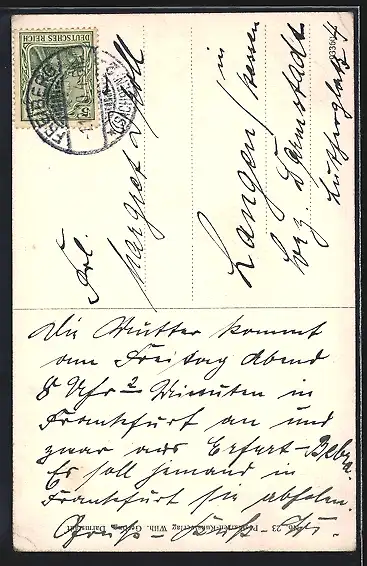 DEUTSCHES REICH
5
FREIBERG
(SACHSEN)
Frl.
Margret
in
Langen/Hessen
bez. Darmstadt
Lutherplatz 4
Die Mutter kommt
am Freitag Abend
8 Uhr 2 Minuten in
Frankfurt an und
zwar aus Erfurt-Bebra.
Es soll jemand in
Frankfurt sie abholen.
Gruß-Kuß
No. 23 - Postkarten-Kunstverlag Wilh. Gerling, Darmstadt